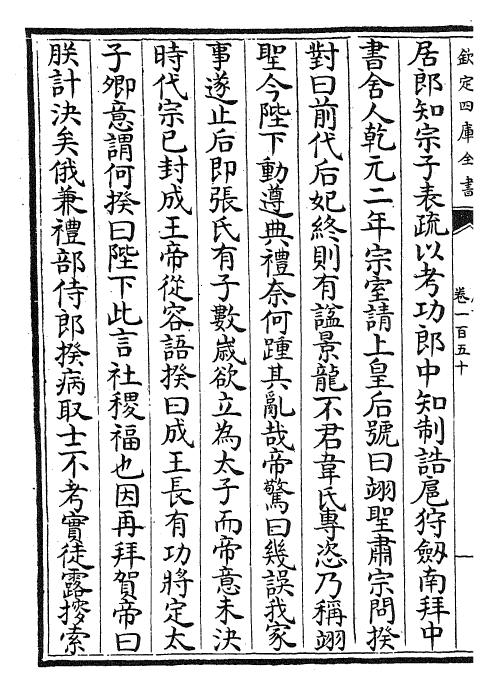 欽定四庫全書
卷一百五十
居郎知宗子表疏以考功郎中知制誥扈狩劔南拜中
書舍人乾元二年宗室請上皇后號曰翊聖肅宗問揆
對曰前代后妃終則有諡景龍不君韋氏專恣乃稱翊
聖今陛下動遵典禮奈何踵其亂哉帝驚曰幾誤我家
事遂止后即張氏有子數歳欲立為太子而帝意未決
時代宗已封成王帝從容語揆曰成王長有功將定太
子卿意謂何揆曰陛下此言社稷福也因再拜賀帝曰
朕計決矣俄兼禮部侍郎揆病取士不考實徒露搜索